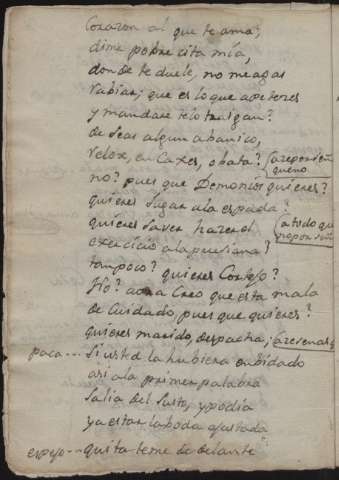 Corazon al que te ama;
dime pobre cita mia,
donde te duele, no me agas
rabiar; que es lo que apeteces
y mandare telo traigan?
deseas algun abanico,
relox, encaxes, o bata?
no? pues que Demonios quieres?
quieres jugar ala espada?
quieres saver hazer el
exercicio ala prusiana?
tampoco? quieres Cortejo?
No? aora Creo que esta mala
de Cuidado, pues que quieres?
quieres marido, despacha,
paca... Si usted la hubiera
asi ala primer palabra
salia del susto, y podia
ya estar la boda ajustada
espejo... quitateme de delante